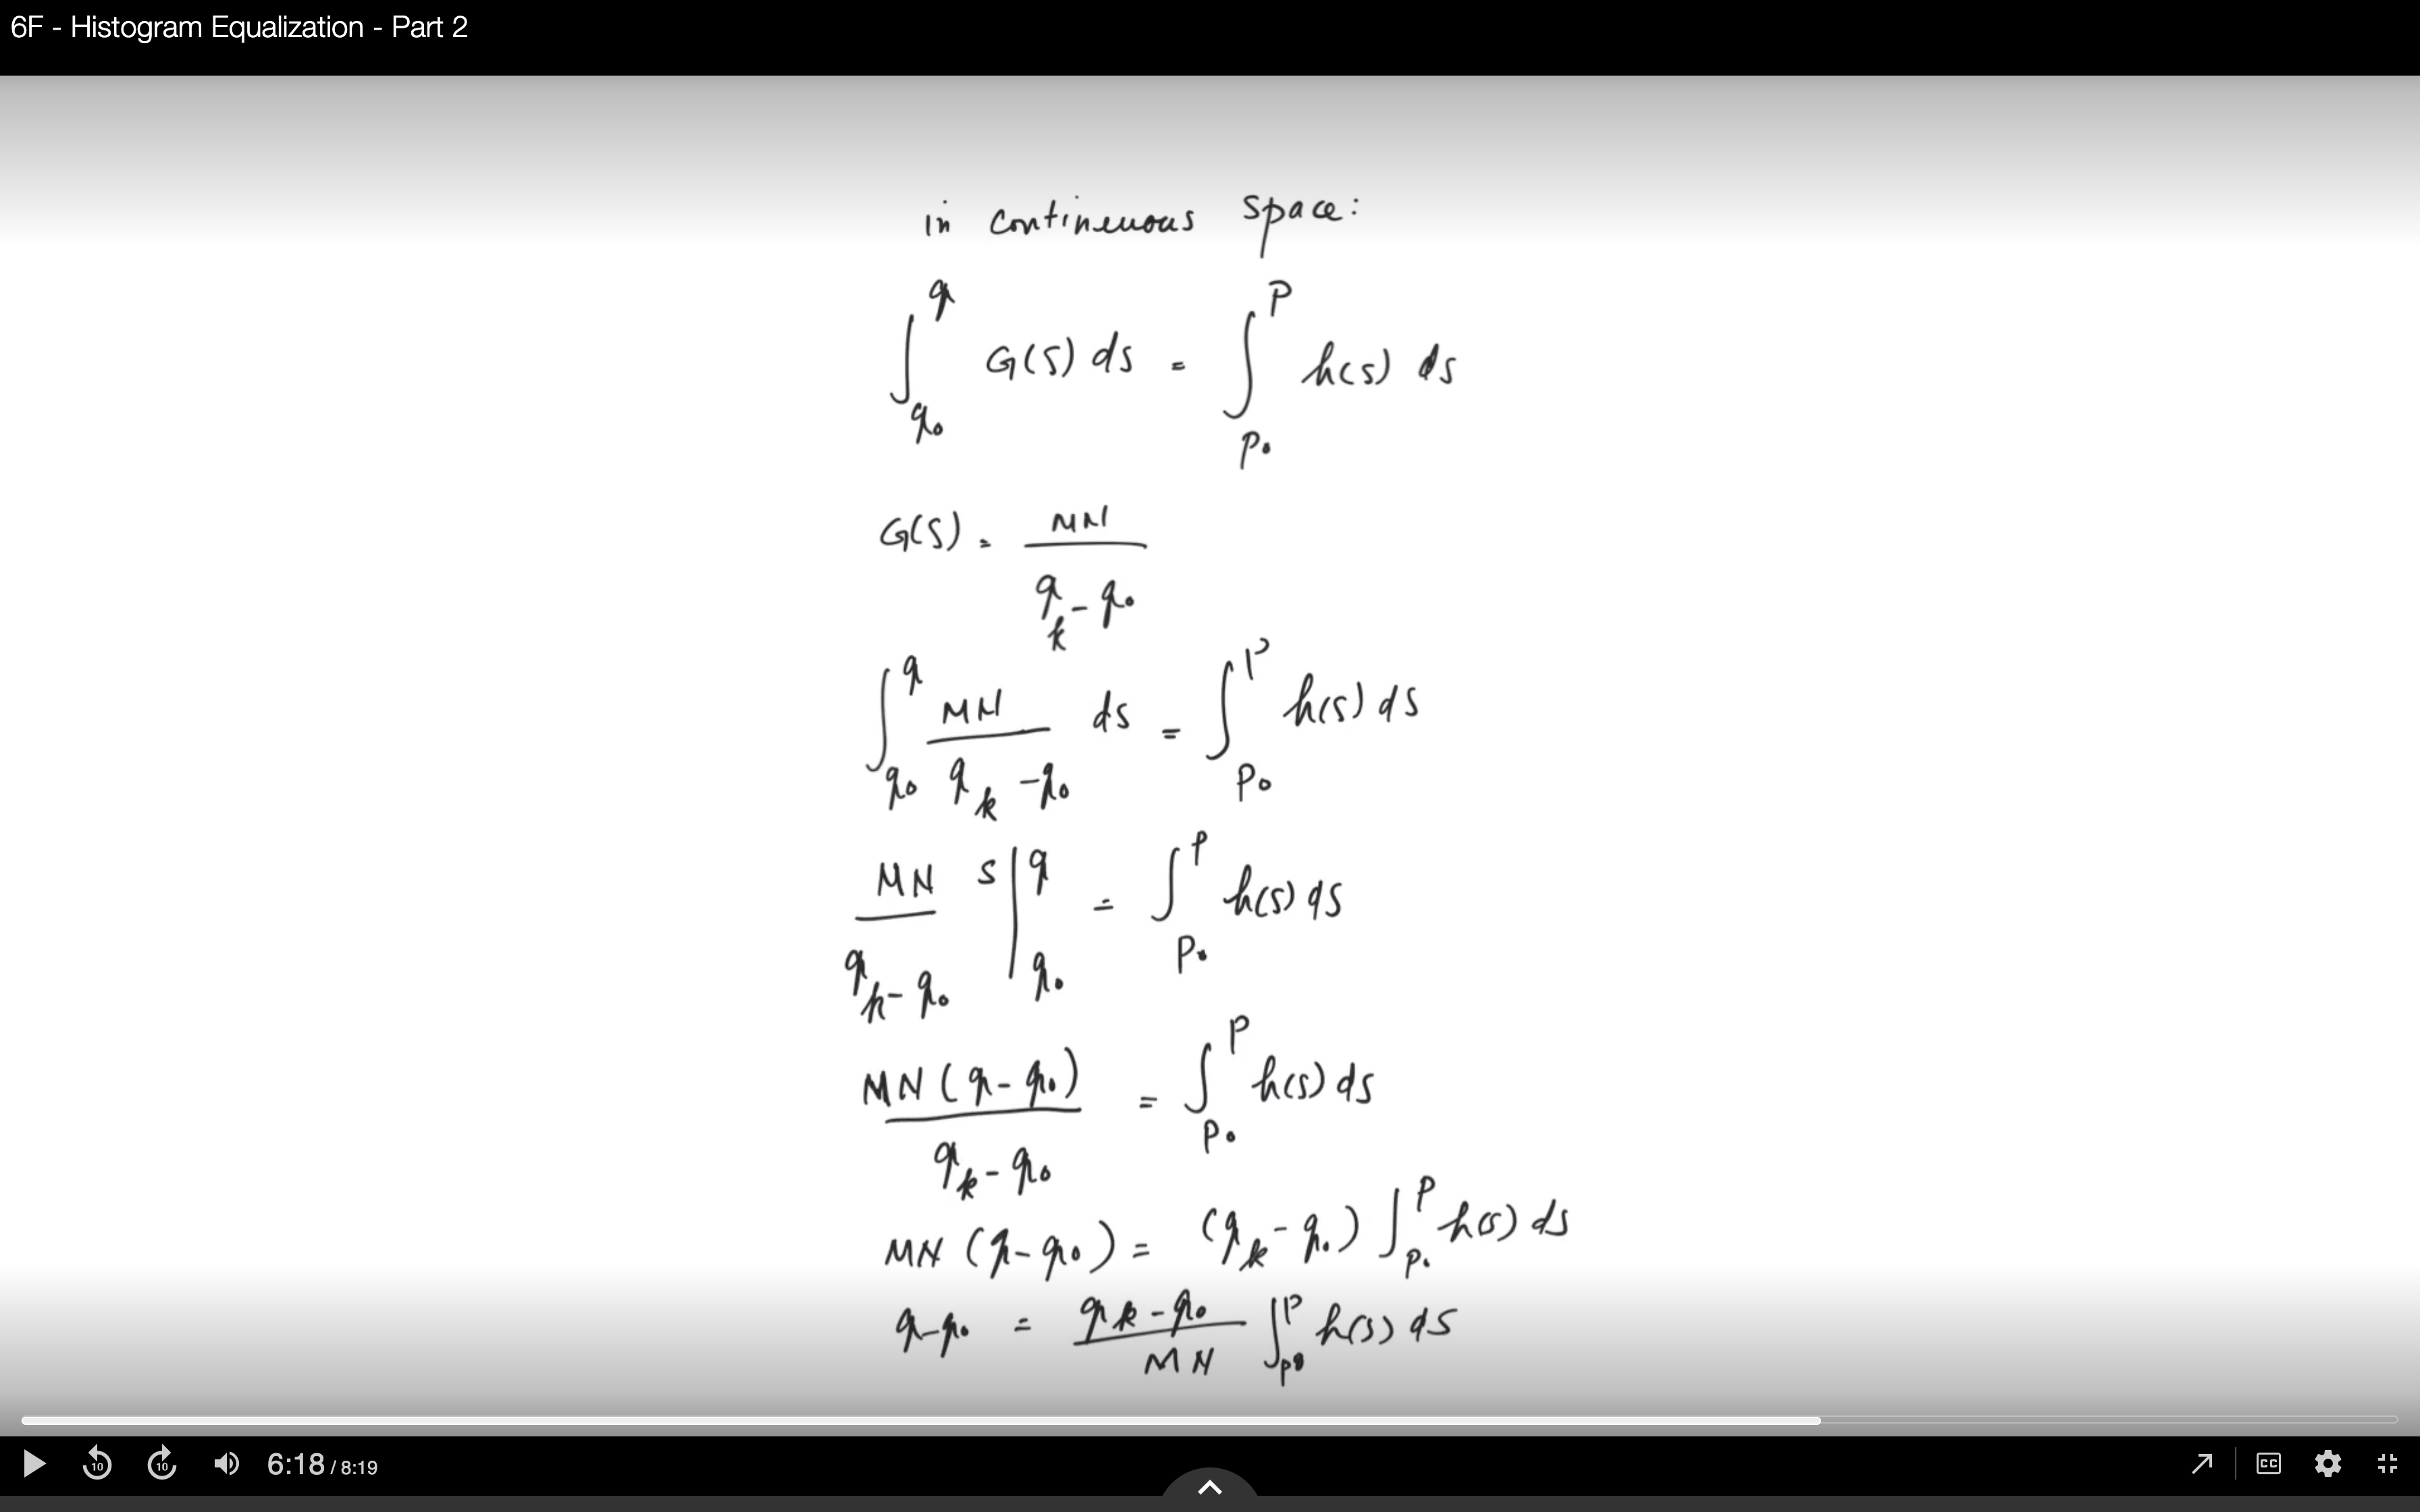 6F - Histogram Equalization - Part 2
in continuous space:
∫_{q₀}^{q} G(s) ds = ∫_{p₀}^{p} h(s) ds
G(s) = MN / (q_k - q₀)
∫_{q₀}^{q} MN / (q_k - q₀) ds = ∫_{p₀}^{p} h(s) ds
MN / (q_k - q₀) s |_{q₀}^{q} = ∫_{p₀}^{p} h(s) ds
MN (q - q₀) / (q_k - q₀) = ∫_{p₀}^{p} h(s) ds
MN (q - q₀) = (q_k - q₀) ∫_{p₀}^{p} h(s) ds
q - q₀ = (q_k - q₀) / MN ∫_{p₀}^{p} h(s) ds
10 10 6:18 / 8:19 CC